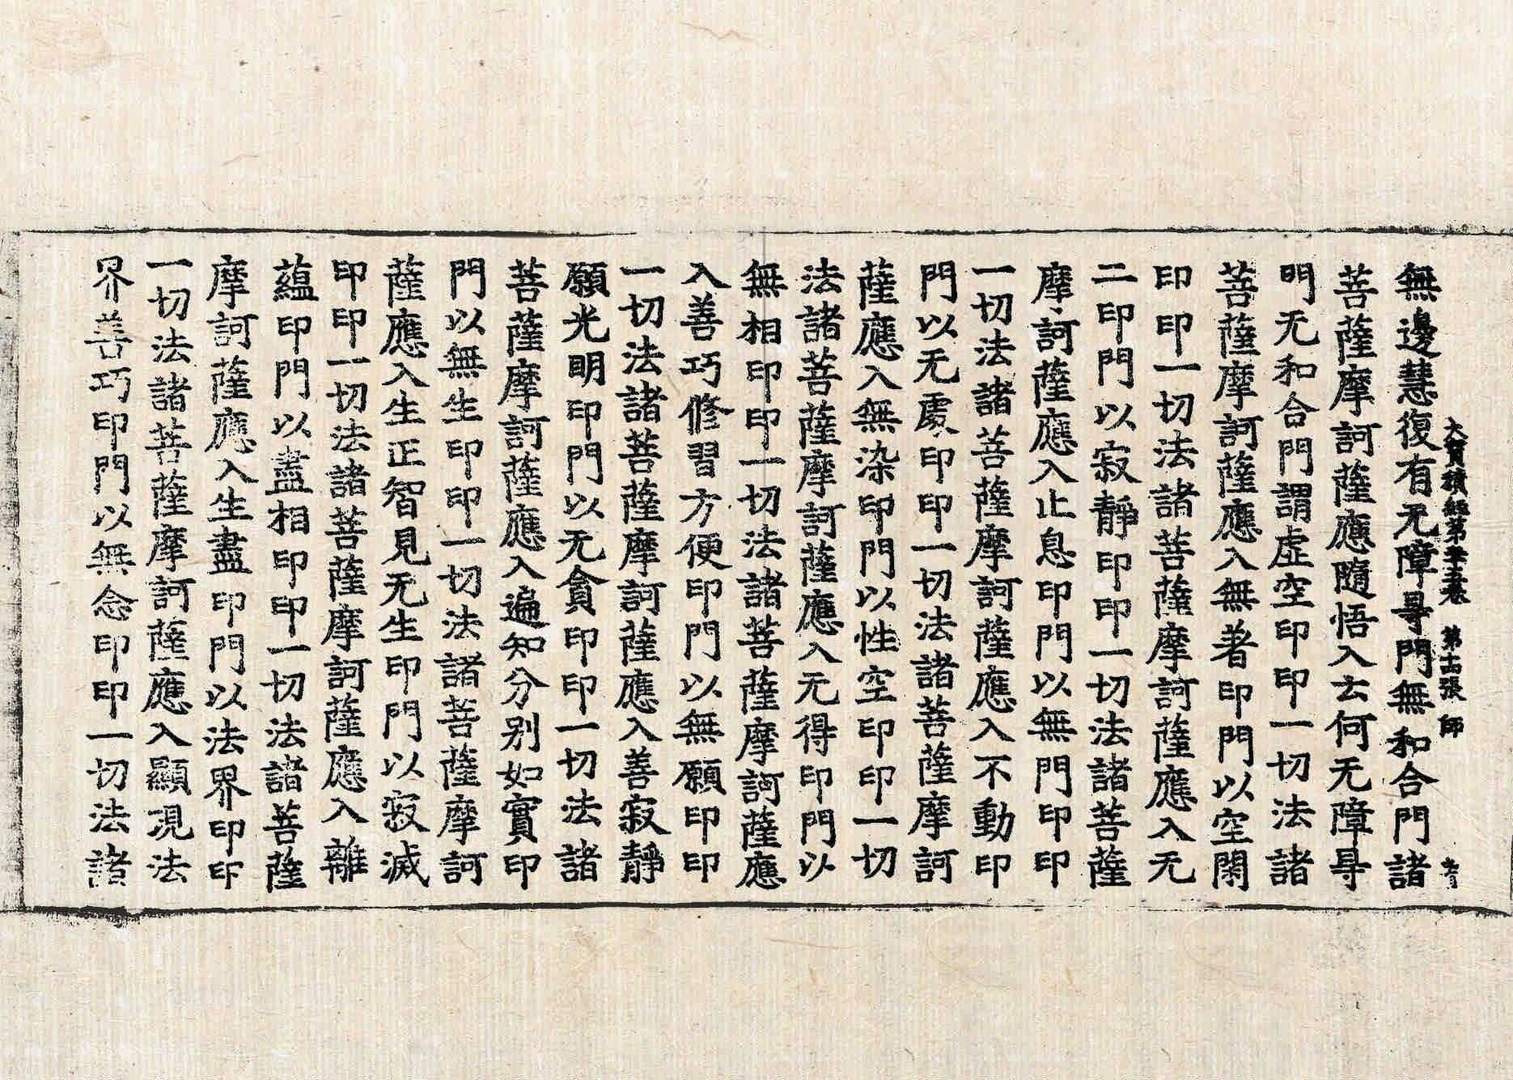 大寶積經第二十五卷 第張 師
無邊慧復有无障㝵門無和合門諸
菩薩摩訶薩應隨悟入云何无障㝵
門无和合門謂虛空印印一切法諸
菩薩摩訶薩應入無著印門以空閑
印印一切法諸菩薩摩訶薩應入无
二印門以寂靜印印一切法諸菩薩
摩訶薩應入止息印門以無門印印
一切法諸菩薩摩訶薩應入不動印
門以无處印印一切法諸菩薩摩訶
薩應入無染印門以性空印印一切
法諸菩薩摩訶薩應入无得印門以
無相印印一切法諸菩薩摩訶薩應
入善巧修習方便印門以無願印印
一切法諸菩薩摩訶薩應入善寂靜
願光明印門以无貪印印一切法諸
菩薩摩訶薩應入遍知分别如實印
門以無生印印一切法諸菩薩摩訶
薩應入生正智見无生印門以寂滅
印印一切法諸菩薩摩訶薩應入離
蘊印門以盡相印印一切法諸菩薩
摩訶薩應入生盡印門以法界印印
一切法諸菩薩摩訶薩應入顯現法
界善巧印門以無念印印一切法諸